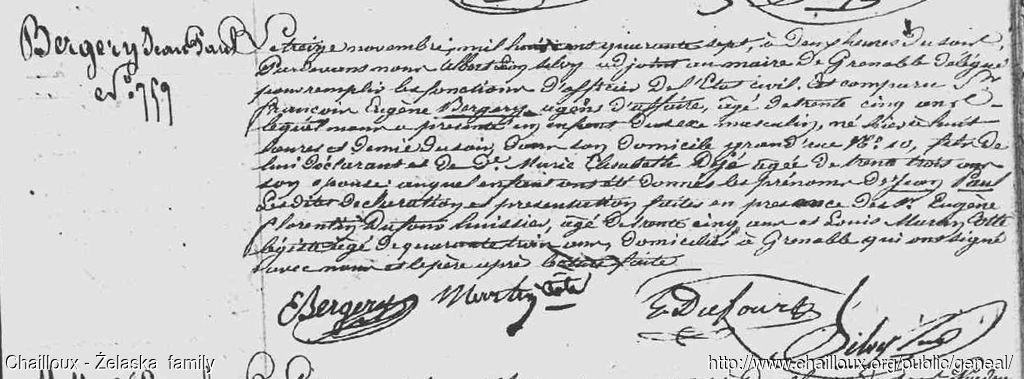 Bergery Jean Paul
N.º 759
Le treize novembre mil huit cent quarante sept, à deux heures du soir,
Pardevant nous Albert Léon Silvy adjoint au maire de Grenoble délégué
pour remplir les fonctions d'officier de l'Etat civil, est comparu Sr
françois Eugène Bergery agent d'affaire, âgé de trente cinq ans
lequel nous a présenté un enfant du sexe masculin, né hier à huit
heures et demie du soir, dans son domicile grand'rue N.º 10, fils de
lui déclarant et de De Marie Elisabeth Déjé âgée de trente trois ans
son épouse: auquel enfant ont été donnés les prénoms de Jean Paul
Lesdites déclaration et présentation faites en présence des Sr Eugène
florentin Dufour huissier, âgé de trente cinq ans et Louis Martin
âgé de quarante trois ans, domiciliés à Grenoble qui ont signé
avec nous et le père après lecture faite
EBergery Martin E Dufour Silvy
Chailloux - Żelaska family
http://www.chailloux.org/public/geneal/